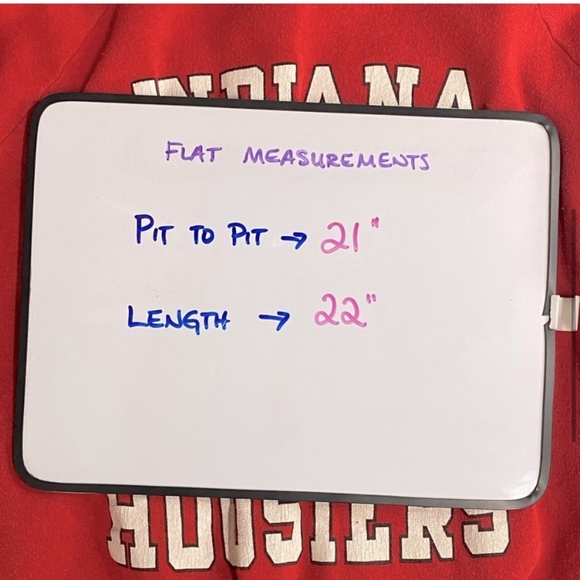 INDIANA
FLAT MEASUREMENTS
PIT TO PIT → 21"
LENGTH → 22"
HOOSIERS